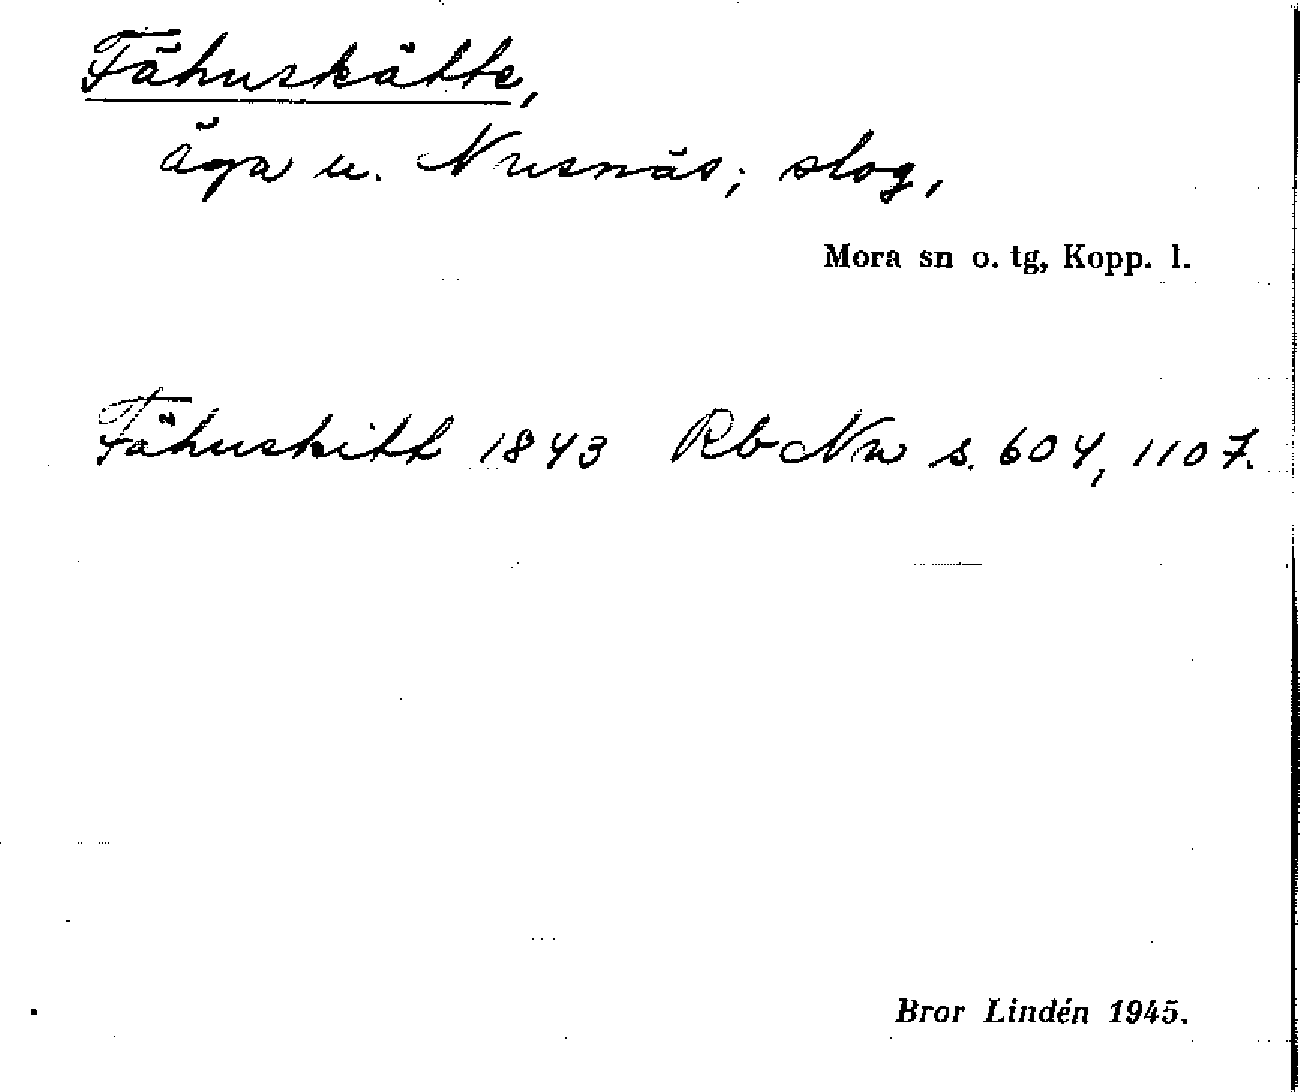 Fähuskätte,
äga u. Nusnäs; slog,
Mora sn o. tg, Kopp. l.
Fähuskitt 1843 Rb Nw s. 604, 1107.
Bror Lindén 1945.